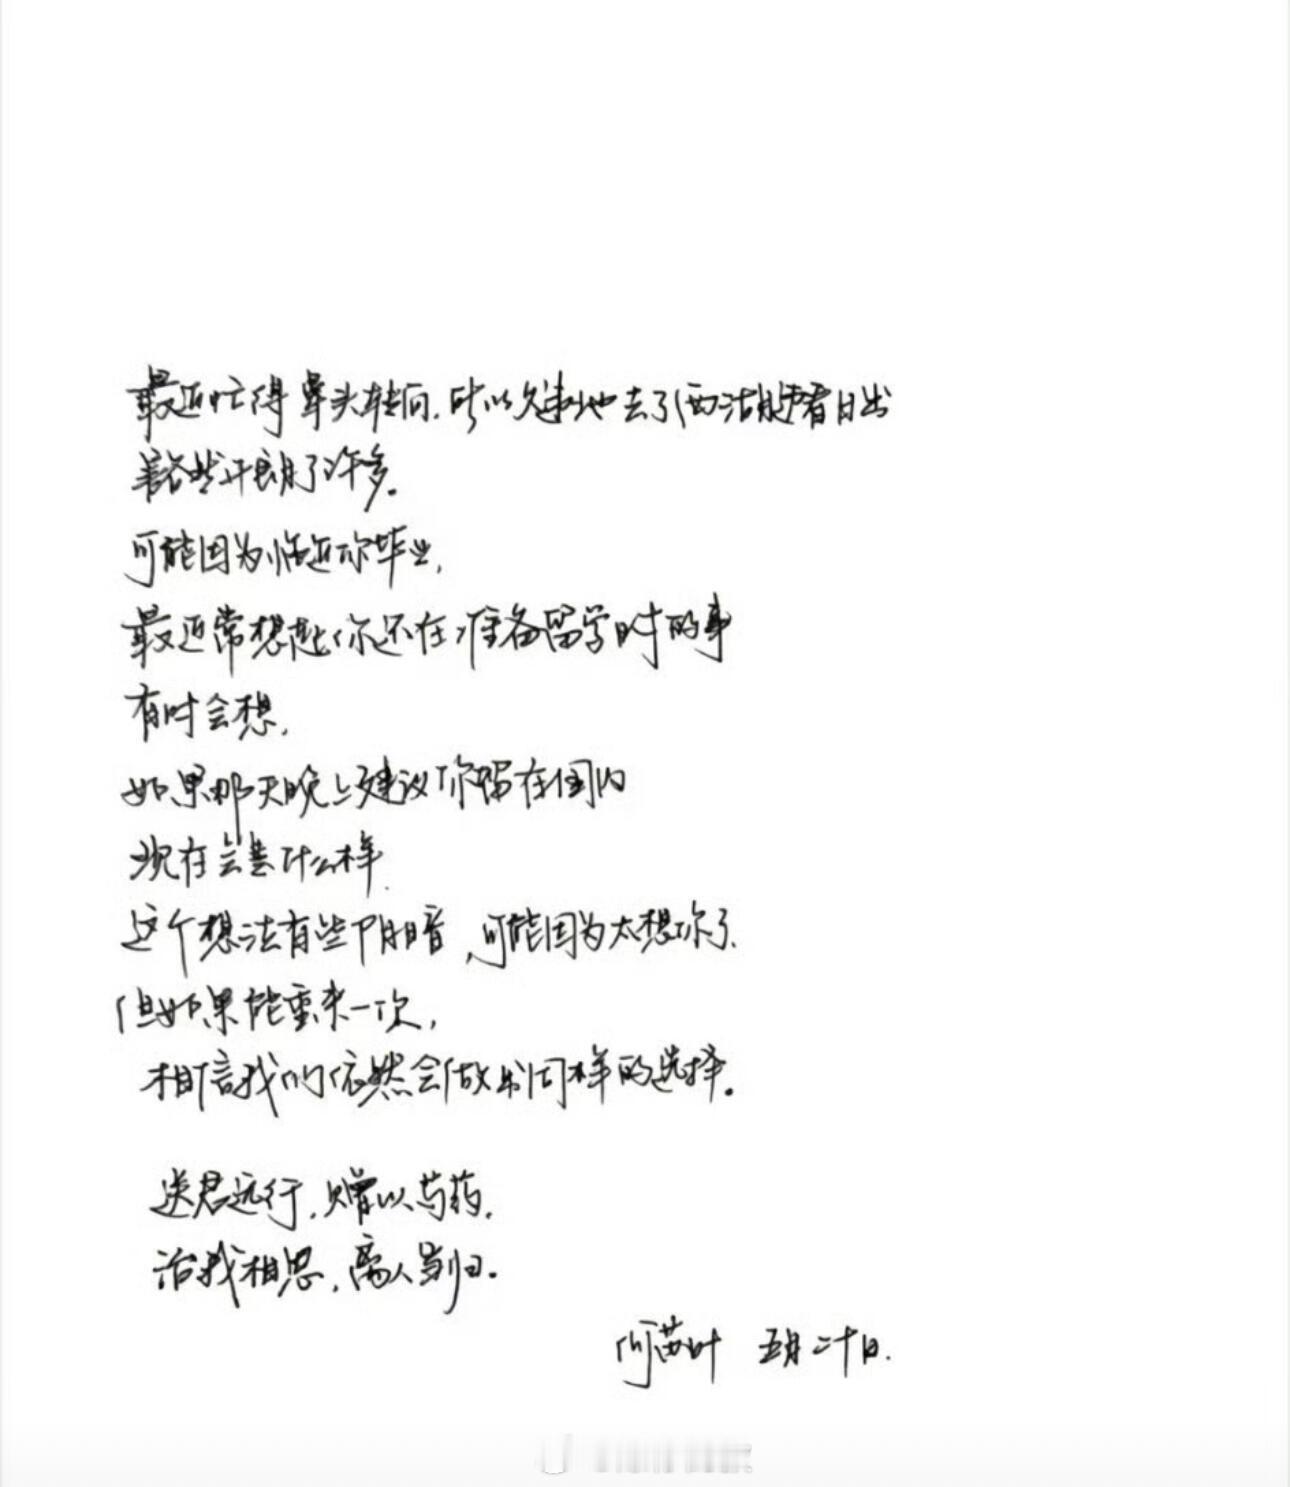 最近忙得晕头转向.所以久违地去了西湖边看日出
豁然开朗了许多.
可能因为临近你毕业,
最近常想起你还在准备留学时的事
有时会想,
如果那天晚上建议你留在国内
现在会是什么样.
这个想法有些阴暗,可能因为太想你了.
但如果能重来一次,
相信我们依然会做出同样的选择.
送君远行.赠以芍药.
治我相思,离人当归.
何苗叶 五月二十日.